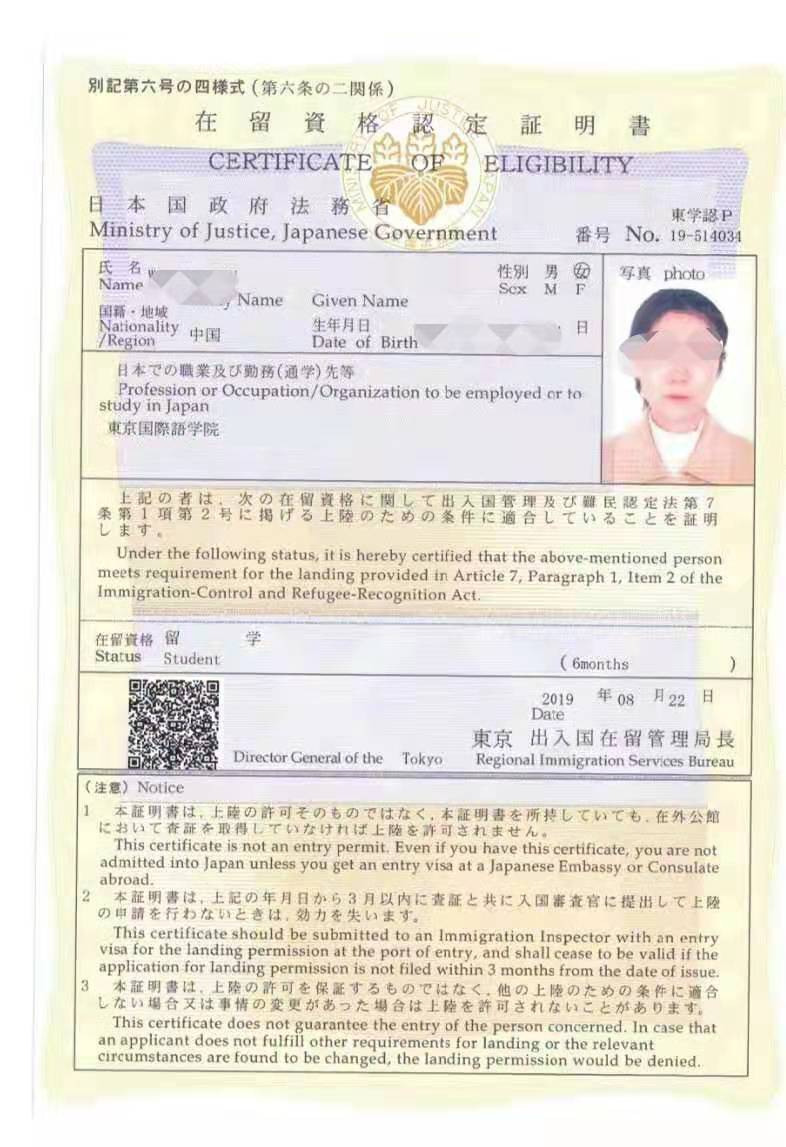 別記第六号の四様式(第六条の二関係)
在留資格認定証明書
CERTIFICATE OF ELIGIBILITY
MINISTRY OF JUSTICE JAPAN
日本国政府法務省
Ministry of Justice, Japanese Government
東学認P
番号 No. 19-514034
氏名
Name
y Name Given Name
性別 男 女
Sex M F
写真 photo
国籍・地域
Nationality
/Region
中国
生年月日
Date of Birth
日
日本での職業及び勤務(通学)先等
Profession or Occupation/Organization to be employed or to
study in Japan
東京国際語学院
上記の者は、次の在留資格に関して出入国管理及び難民認定法第7
条第1項第2号に掲げる上陸のための条件に適合していることを証明
します。
Under the following status, it is hereby certified that the above-mentioned person
meets requirement for the landing provided in Article 7, Paragraph 1, Item 2 of the
Immigration-Control and Refugee-Recognition Act.
在留資格 留 学
Status Student
( 6months )
2019 年 08 月 22 日
Date
東京 出入国在留管理局長
Director General of the Tokyo Regional Immigration Services Bureau
(注意) Notice
1 本証明書は、上陸の許可そのものではなく、本証明書を所持していても、在外公館
において査証を取得していなければ上陸を許可されません。
This certificate is not an entry permit. Even if you have this certificate, you are not
admitted into Japan unless you get an entry visa at a Japanese Embassy or Consulate
abroad.
2 本証明書は、上記の年月日から3月以内に査証と共に入国審査官に提出して上陸
の申請を行わないときは、効力を失います。
This certificate should be submitted to an Immigration Inspector with an entry
visa for the landing permission at the port of entry, and shall cease to be valid if the
application for landing permission is not filed within 3 months from the date of issue.
3 本証明書は、上陸の許可を保証するものではなく、他の上陸のための条件に適合
しない場合又は事情の変更があった場合は上陸を許可されないことがあります。
This certificate does not guarantee the entry of the person concerned. In case that
an applicant does not fulfill other requirements for landing or the relevant
circumstances are found to be changed, the landing permission would be denied.